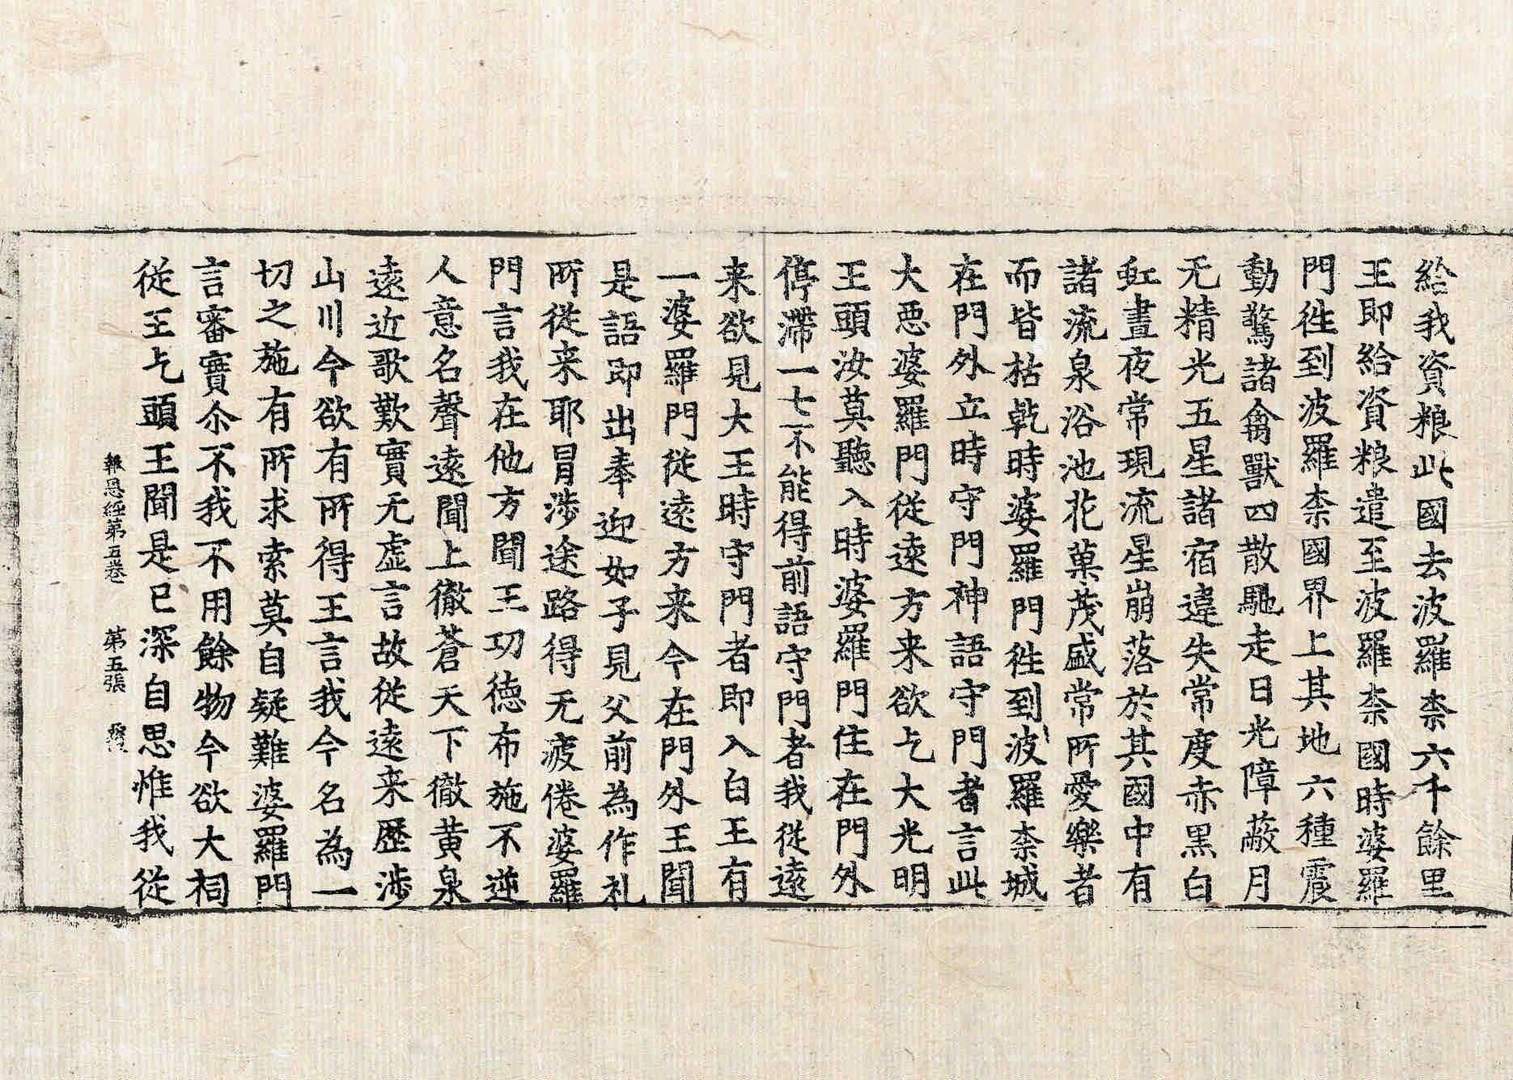 給我資粮此國去波羅柰六千餘里
王即給資粮遣至波羅柰國時婆羅
門徃到波羅柰國界上其地六種震
動驚諸禽獸四散馳走日光障蔽月
无精光五星諸宿違失常度赤黑白
虹晝夜常現流星崩落於其國中有
諸流泉浴池花菓茂盛常所愛樂者
而皆枯乾時婆羅門徃到波羅柰城
在門外立時守門神語守門者言此
大惡婆羅門從遠方来欲乞大光明
王頭汝莫聽入時婆羅門住在門外
停滯一七不能得前語守門者我從遠
来欲見大王時守門者即入白王有
一婆羅門從遠方来今在門外王聞
是語即出奉迎如子見父前為作礼
所從来耶冒涉途路得无疲倦婆羅
門言我在他方聞王功德布施不逆
人意名聲遠聞上徹蒼天下徹黃泉
遠近歌歎實无虛言故從遠来歷涉
山川今欲有所得王言我今名為一
切之施有所求索莫自疑難婆羅門
言審實尒不我不用餘物今欲大祠
從王乞頭王聞是已深自思惟我從
報恩經第五卷 第五張